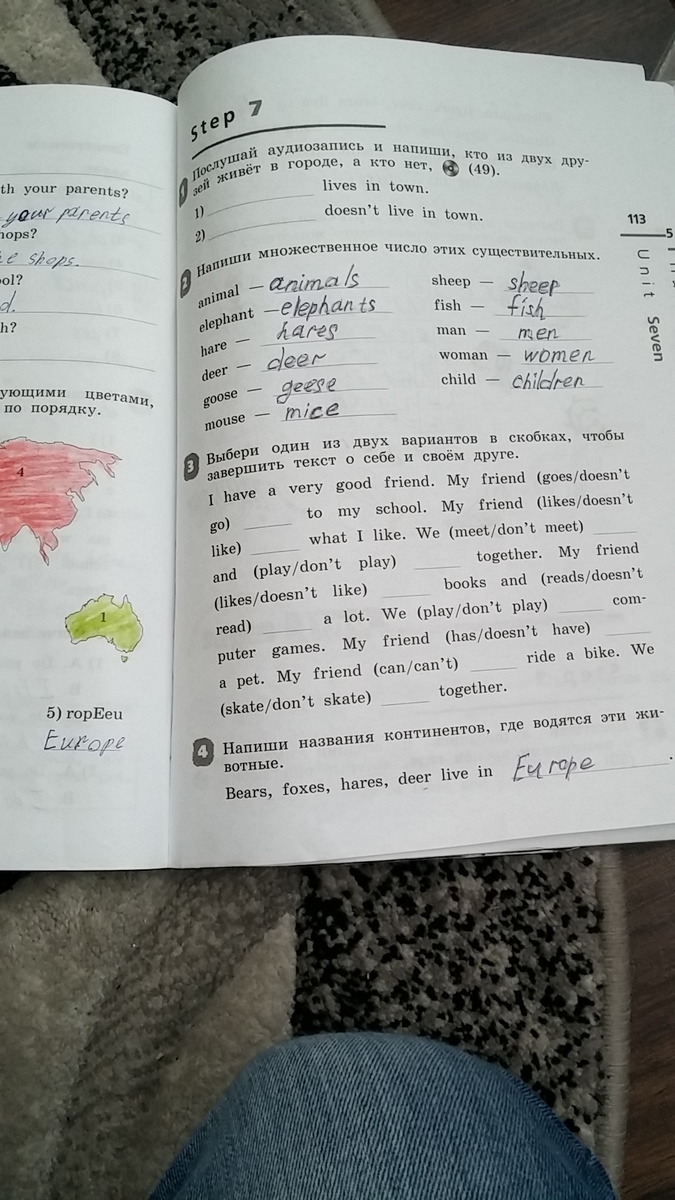 th your parents?
your parents
hops?
e shops.
ol?
d.
h?
ующими цветами,
по порядку.
4
1
5) ropEeu
Europe
Step 7
1 Послушай аудиозапись и напиши, кто из двух дру-
зей живёт в городе, а кто нет, (49).
1) ______ lives in town.
2) ______ doesn't live in town.
2 Напиши множественное число этих существительных.
animal — animals
elephant — elephants
hare — hares
deer — deer
goose — geese
mouse — mice
sheep — sheep
fish — fish
man — men
woman — women
child — children
3 Выбери один из двух вариантов в скобках, чтобы
завершить текст о себе и своём друге.
I have a very good friend. My friend (goes/doesn't
go) ______ to my school. My friend (likes/doesn't
like) ______ what I like. We (meet/don't meet) ______
and (play/don't play) ______ together. My friend
(likes/doesn't like) ______ books and (reads/doesn't
read) ______ a lot. We (play/don't play) ______ com-
puter games. My friend (has/doesn't have) ______
a pet. My friend (can/can't) ______ ride a bike. We
(skate/don't skate) ______ together.
4 Напиши названия континентов, где водятся эти жи-
вотные.
Bears, foxes, hares, deer live in Europe.
113
Unit Seven
5